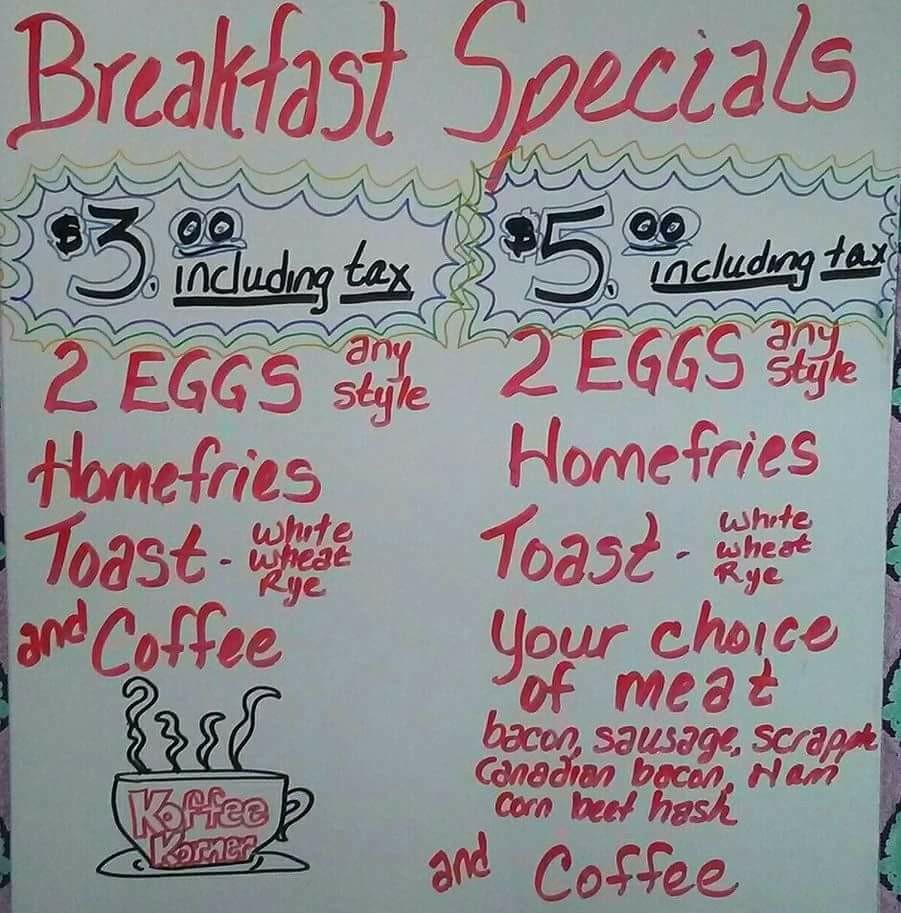 Breakfast Specials
$3.00 including tax
2 EGGS any style
Homefries
Toast - White Wheat Rye
and Coffee
Koffee
Korner
$5.00 including tax
2 EGGS any style
Homefries
Toast - White Wheat Rye
Your choice
of meat
bacon, sausage, scrapple
Canadian bacon, Ham
corn beef hash
and Coffee